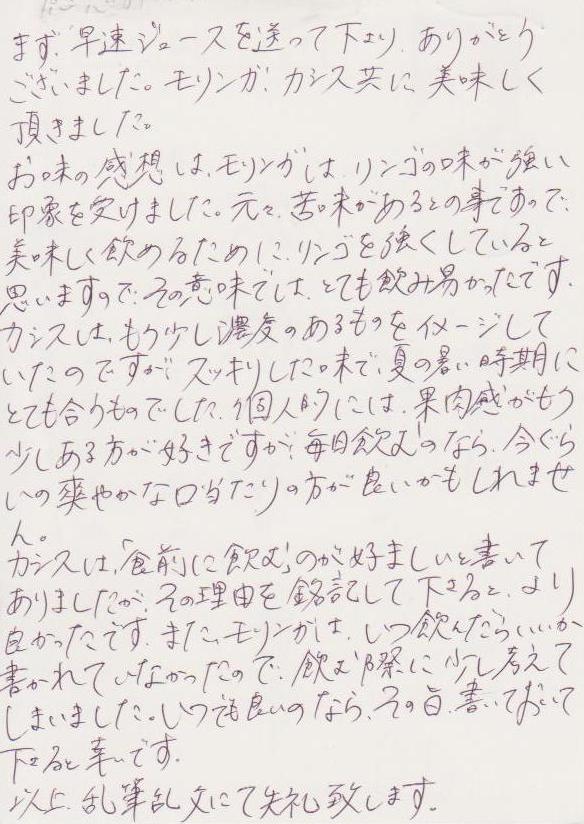 まず、早速ジュースを送って下さり、ありがとう
ございました。モリンガ、カシス共に、美味しく
頂きました。
お味の感想は、モリンガは、リンゴの味が強い
印象を受けました。元々、苦味があるとの事ですので、
美味しく飲めるために、リンゴを強くしていると
思いますので、その意味では、とても飲み易かったです。
カシスは、もう少し濃度のあるものをイメージして
いたのですが、スッキリした味で、夏の暑い時期に
とても合うものでした。個人的には、果肉感がもう
少しある方が好きですが、毎日飲むのなら、今ぐら
いの爽やかな口当たりの方が良いかもしれませ
ん。
カシスは、「食前に飲む」のが好ましいと書いて
ありましたが、その理由を銘記して下さると、より
良かったです。また、モリンガは、いつ飲んだらいいか
書かれていなかったので、飲む際に少し考えて
しまいました。いつでも良いのなら、その旨、書いておいて
下さると幸いです。
以上、乱筆乱文にて失礼致します。